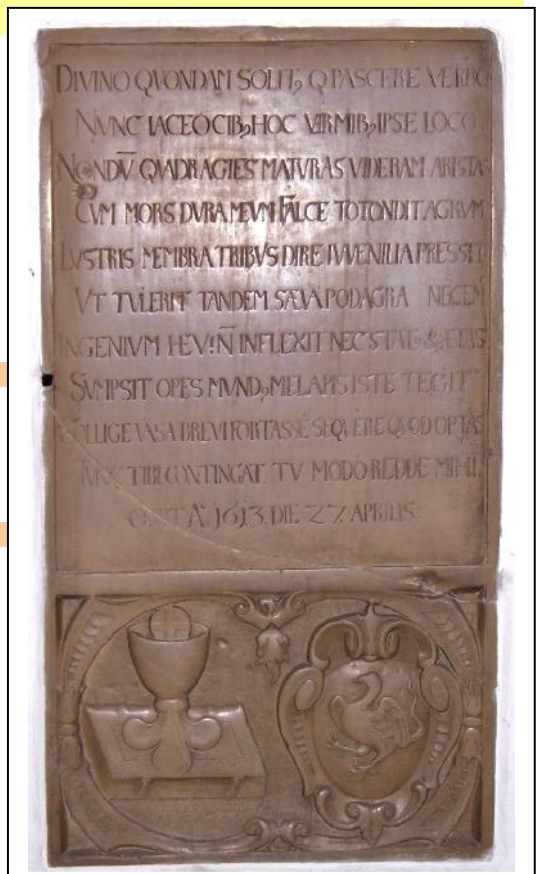 DIVINO QVONDAM SOLIT9 Q PASCERE VERBO
NVNC IACEO CIB9 HOC VERMIB9 IPSE LOCO
NONDV̄ QVADRAGIES MATVRAS VIDERAM ARISTAS
CVM MORS DVRA MEVM FALCE TOTONDIT AGRVM
LVSTRIS MEMBRA TRIBVS DIRE IVVENILIA PRESSIT
VT TVLERIT TANDEM SÆVA PODAGRA NECEM
INGENIVM HEV! N̄ INFLEXIT NEC
SVMPSIT OPES MVND9 ME LAPIS ISTE TEGIT
COLLIGE VASA BREVI FORTASSE SEQVERE QVOD OPTAS
TIBI CONTINGAT TV MODO REDDE MIHI
OBIIT Aº 1613. DIE 27. APRILIS